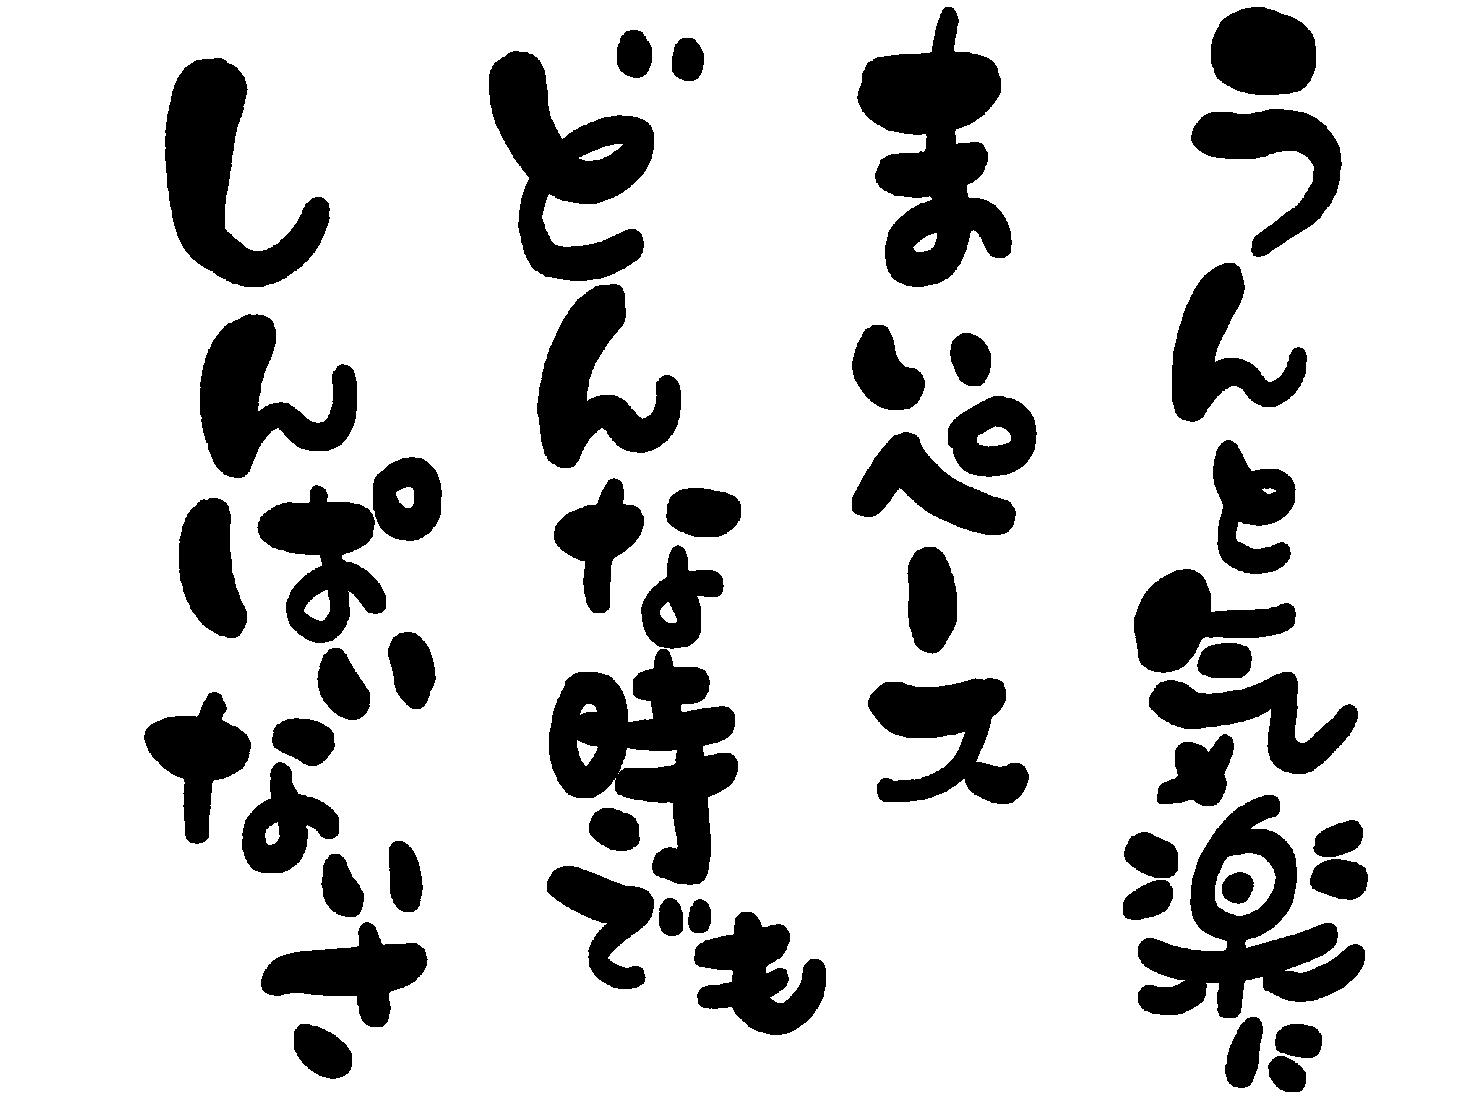 うんと気楽に
まいペース
どんな時でも
しんぱいないさ